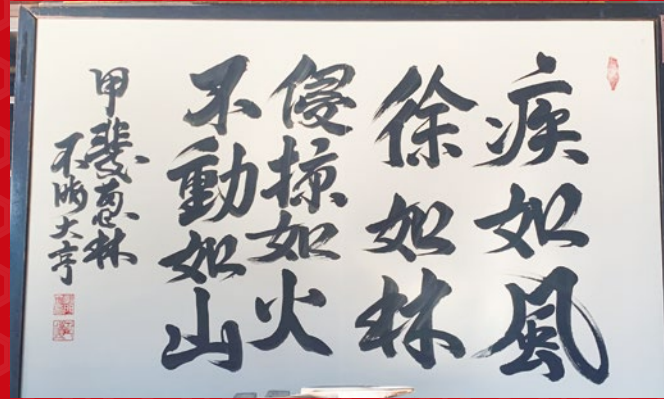 疾如風
徐如林
侵掠如火
不動如山
甲斐恵林
不‪‬大亨